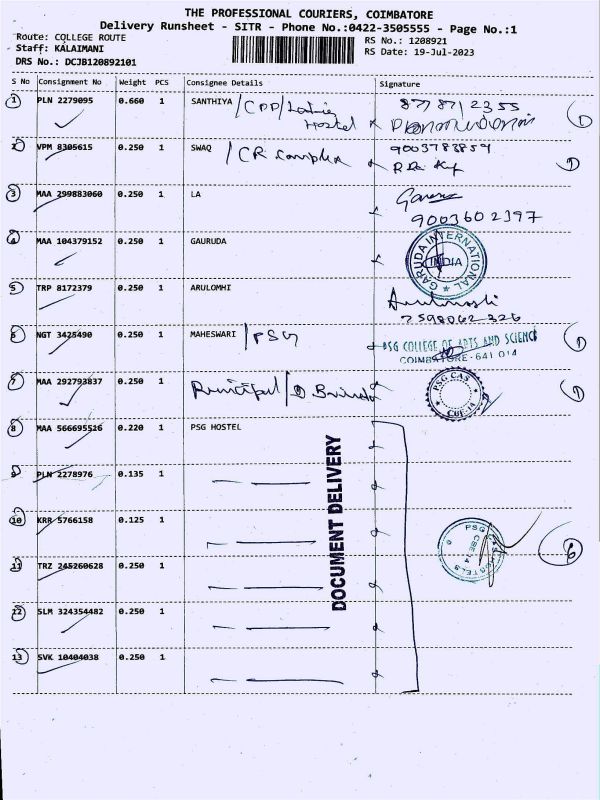 THE PROFESSIONAL COURIERS, COIMBATORE
Delivery Runsheet - SITR - Phone No.:0422-3505555 - Page No.:1
Route: COLLEGE ROUTE
RS No.: 1208921
Staff: KALAIMANI
RS Date: 19-Jul-2023
DRS No.: DCJB120892101
S No Consignment No Weight PCS Consignee Details Signature
1 PLN 2279095 0.660 1 SANTHIYA / CPP / Ladies Hostel 877871 2355
2 VPM 8305615 0.250 1 SWAQ / CR Complex 9003783859
3 MAA 299883060 0.250 1 LA
9003602397
4 MAA 104379152 0.250 1 GAURUDA GARUDA INTERNATIONAL INDIA
5 TRP 8172379 0.250 1 ARULOMHI
7598062326
6 NGT 3425490 0.250 1 MAHESWARI / PSG PSG COLLEGE OF ARTS AND SCIENCE
COIMBATORE - 641 014
7 MAA 292793837 0.250 1 Principal / PSG CAS CBE-14
8 MAA 566695526 0.220 1 PSG HOSTEL
9 PLN 2278976 0.135 1
10 KRR 5766158 0.125 1
11 TRZ 245260628 0.250 1
12 SLM 324354482 0.250 1
13 SVK 10404038 0.250 1
DOCUMENT DELIVERY
PSG CAS HOSTELS
CBE-14
6